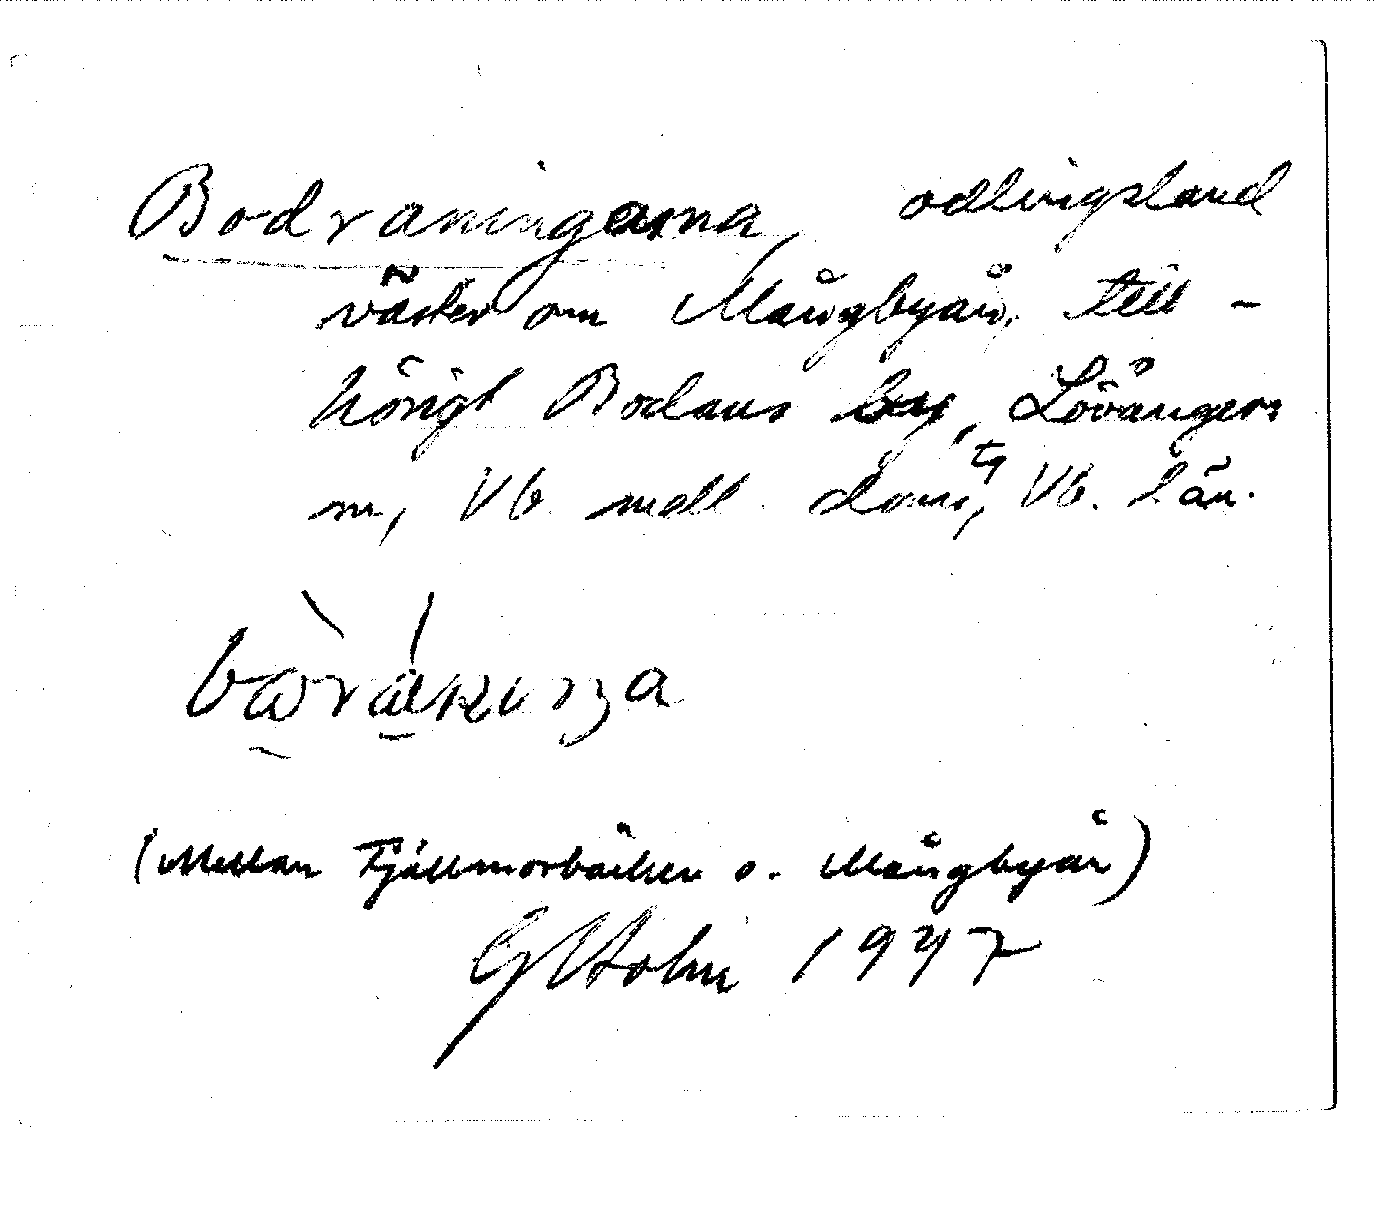 Bodraningarna, odlingsland
väster om Mångbyån, till-
hörigt Bodans by, Lövångers
sn, Vb. mell. doms, Vb. län.
(Mellan Fjällmorbäcken o. Mångbyån)
G Holm 1947